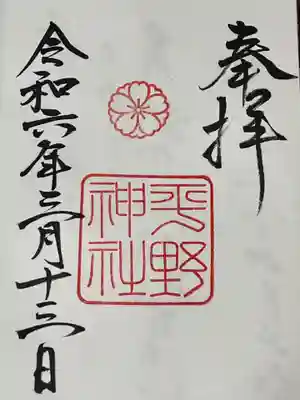 奉拝
平野
神社
令和六年三月十三日